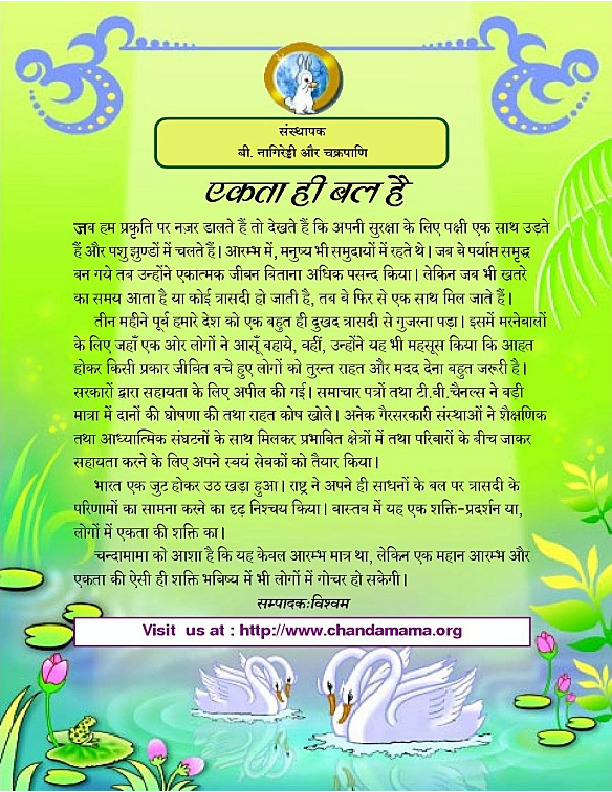 संस्थापक
बी. नागिरेड्डी और चक्रपाणि
एकता ही बल है
जब हम प्रकृति पर नज़र डालते हैं तो देखते हैं कि अपनी सुरक्षा के लिए पक्षी एक साथ उड़ते
हैं और पशु झुण्डों में चलते हैं। आरम्भ में, मनुष्य भी समुदायों में रहते थे। जब वे पर्याप्त समृद्ध
बन गये तब उन्होंने एकात्मक जीवन बिताना अधिक पसन्द किया। लेकिन जब भी खतरे
का समय आता है या कोई त्रासदी हो जाती है, तब वे फिर से एक साथ मिल जाते हैं।
तीन महीने पूर्व हमारे देश को एक बहुत ही दुखद त्रासदी से गुजरना पड़ा। इसमें मरनेवालों
के लिए जहाँ एक ओर लोगों ने आसूँ बहाये, वहीं, उन्होंने यह भी महसूस किया कि आहत
होकर किसी प्रकार जीवित बचे हुए लोगों को तुरन्त राहत और मदद देना बहुत जरूरी है।
सरकारों द्वारा सहायता के लिए अपील की गई। समाचार पत्रों तथा टी.वी.चैनल्स ने बड़ी
मात्रा में दानों की घोषणा की तथा राहत कोष खोले। अनेक गैरसरकारी संस्थाओं ने शैक्षणिक
तथा आध्यात्मिक संघटनों के साथ मिलकर प्रभावित क्षेत्रों में तथा परिवारों के बीच जाकर
सहायता करने के लिए अपने स्वयं सेवकों को तैयार किया।
भारत एक जुट होकर उठ खड़ा हुआ। राष्ट्र ने अपने ही साधनों के बल पर त्रासदी के
परिणामों का सामना करने का दृढ़ निश्चय किया। वास्तव में यह एक शक्ति-प्रदर्शन था,
लोगों में एकता की शक्ति का।
चन्दामामा को आशा है कि यह केवल आरम्भ मात्र था, लेकिन एक महान आरम्भ और
एकता की ऐसी ही शक्ति भविष्य में भी लोगों में गोचर हो सकेगी।
सम्पादक:विश्वम
Visit us at : http://www.chandamama.org